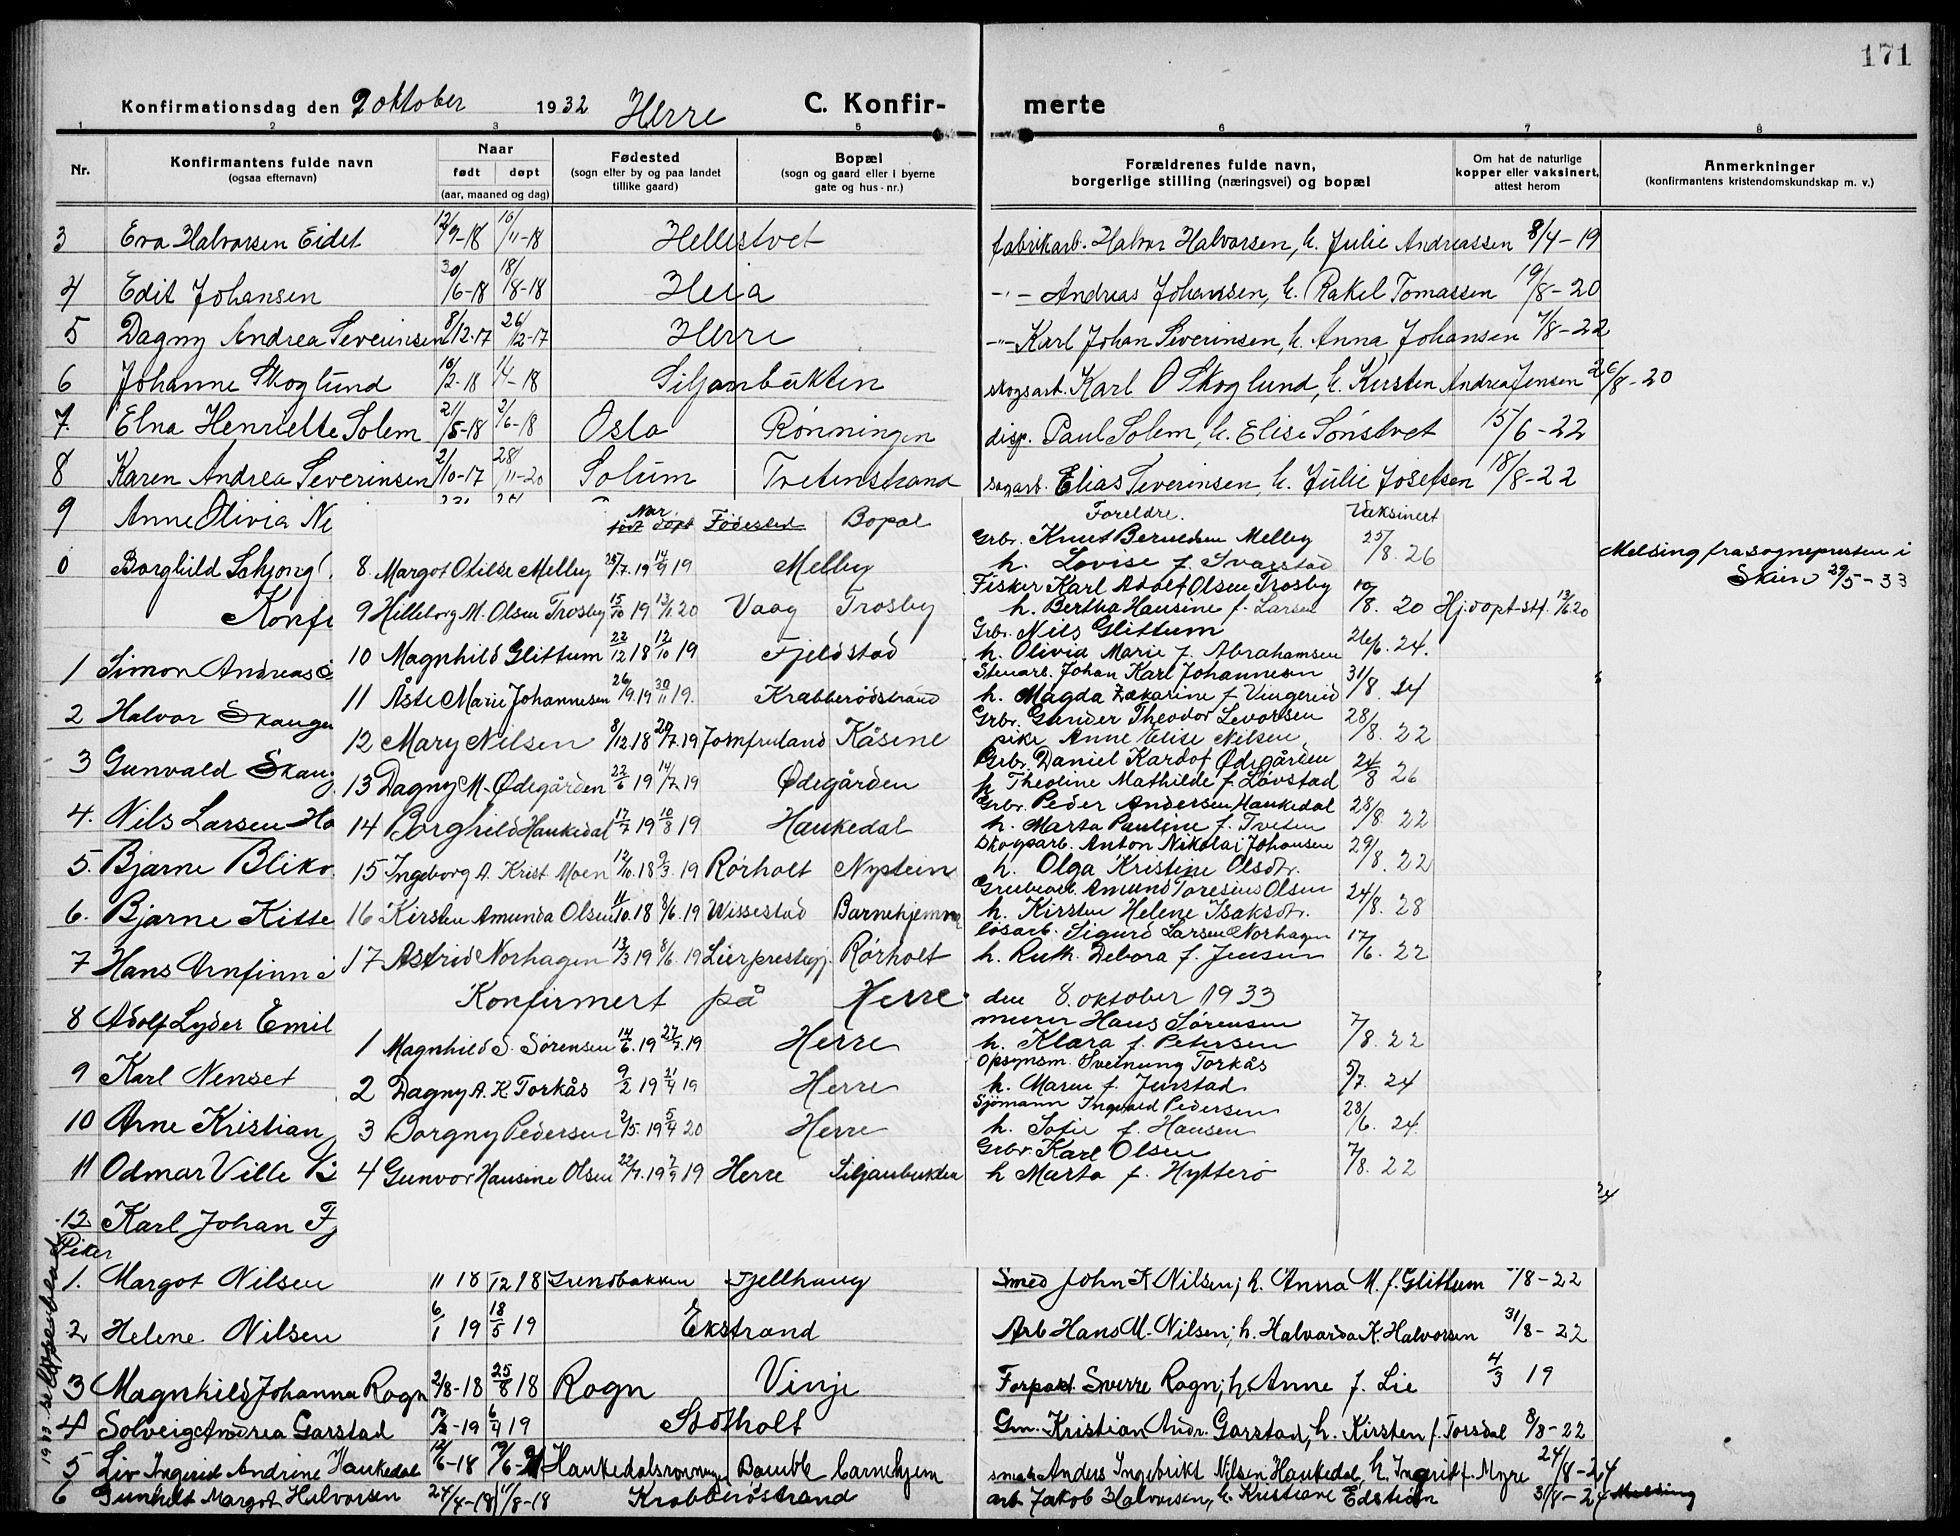 171
Konfirmationsdag den 9 oktober 1932 Herre C. Konfir- merte
1 2 3 5 6 7 8
Nr. Konfirmantens fulde navn (ogsaa efternavn) Naar født døpt (aar, maaned og dag) Fødested (sogn eller by og paa landet tillike gaard) Bopæl (sogn og gaard eller i byerne gate og hus-nr.) Forældrenes fulde navn, borgerlige stilling (næringsvei) og bopæl Om hat de naturlige kopper eller vaksinert, attest herom Anmerkninger (konfirmantens kristendomskundskap m. v.)
3 Eva Halvorsen Eidet 12/9-18 10/11-18 Hellestvet fabrikarb. Halvor Halvorsen, h. Julie Andreassen 8/4-19
4 Edit Johansen 30/6-18 18/8-18 Heia -"- Andreas Johansen, h. Rakel Tomassen 19/8-20
5 Dagny Andrea Severinsen 8/12-17 26/12-17 Herre -"- Karl Johan Severinsen, h. Anna Johansen 7/8-22
6 Johanne Skoglund 10/2-18 1/4-18 Siljanbukten skogsarb. Karl O Skoglund, h. Kirsten Andrea Jensen 26/8-20
7. Elna Henriette Solem 21/5-18 2/6-18 Oslo Rönningen disp. Paul Solem, h. Elise Sönstvet 15/6-22
8 Karen Andrea Severinsen 2/10-17 28/11-20 Solum Tvetenstrand sagarb. Elias Severinsen, h. Julie Josefsen 18/8-22
9 Anne Olivia Ne
Nar født døpt Fødested Bopæl Foreldre. Vaksinert
0 Borghild Schjong
Konfi
8 Margot Otilie Melby 25/7. 19 14/9 19 Melby Grbr. Knut Berntsen Melby
h. Lovise f. Svarstad 25/8. 26
Melding fra sognepresten i
Skien 29/5-33
9 Hilleborg M. Olsen Trosby 15/10 19 13/6 20 Vaag Trosby Fisker Karl Adolf Olsen Trosby
h. Bertha Hansine f. Larsen 10/8. 20 Hj.døpt stf. 13/6 20
10 Magnhild Glittum 22/12 18 12/10 19 Fjeldstad Grbr. Nils Glittum
h. Olivia Marie f. Abrahamsen 26/6. 24.
11 Åste Marie Johannesen 26/9. 19 30/11 19. Krabberødstrand Stenarb. Johan Karl Johannesen
h. Magda Zakarine f. Vingereid 31/8. 24
12 Mary Nilsen 8/12. 18 20/7. 19 Jomfruland Kåsene Grbr. Gunder Theodor Levorsen
pike Anne Elise Nilsen 28/8. 22
13 Dagny M. Ødegården 22/6 19 14/7 19 Ødegården Grbr. Daniel Kardof Ødegården
h Theoline Mathilde f. Løvstad 24/8 26
14 Borghild Haukedal 17/7 19 10/8 19 Haukedal Grbr. Peder Andersen Haukedal
h. Marta Pauline f. Tveten 28/8. 22
15 Ingeborg A. Krist Moen 12/10. 18 9/3. 19 Rørholt Nystein Skogsarb. Anton Nikolai Johansen
h. Olga Kristine Olsdtr. 29/8. 22
16 Kirsten Amunda Olsen 11/10. 18 8/6. 19 Wissestad Barnehjemme Grubearb. Amund Toresius Olsen
h. Kirsten Helene Isaksdtr. 24/8. 28
17 Astrid Norhagen 13/3 19 8/6. 19 Lier prestegj. Rørholt løsarb. Sigurd Larsen Norhagen
h. Ruth Debora f. Jensen 17/6. 22
Konfirmert på Herre den 8. oktober 1933
1 Magnhild S. Sørensen 14/6. 19 27/7. 19 Herre murer Hans Sørensen
h. Klara f. Petersen 7/8. 22
2 Dagny A. K. Torkås 9/2 19 21/4 19 Herre Opsynsm. Sveinung Torkås
h. Maren f. Jenstad 5/7. 24
3 Borgny Pedersen 2/5. 19 5/4 20 Herre Sjömann Ingvald Pedersen
h. Sofie f. Hansen 28/6. 24
4 Gunvor Hansine Olsen 22/7. 19 7/9 19 Herre Siljanbukten Grbr. Karl Olsen
h Marta f. Hytterö 7/8. 22
1 Simon Andreas
2 Halvor Skaugen
3 Gunvald Skaug
4. Nils Larsen Ha
5. Bjarne Bliko
6. Bjarne Kitte
7 Hans Arnfinn
8 Adolf Lyder Emil
9 Karl Nenset
10 Arne Kristian
11 Odmar Ville
12 Karl Johan Fj
Piker
1. Margot Nilsen 11 18 12 18 Grundbakken Fjellhaug Smed John K. Nilsen; h. Anna M. f. Glittum /8-22
2 Helene Nilsen 6/1 19 18/5 19 Ekstrand Arb Hans M. Nilsen; h. Halvarda K. Halvorsen 31/8-22
3 Magnhild Johanna Rogn 2/8-18 25/8 18 Rogn Vinje Forpakt. Sverre Rogn; h. Anne f. Lie 4/3 19
4 Solveig Andrea Garstad /3-19 6/4 19 Stotholt Gm. Kristian Andr. Garstad, h. Kirsten f. Torsdal 8/8-22
5 Liv Ingerid Andrine Haukedal 12/6-18 19/6-21 Haukedalsrønningen Bamble barnehjem smab. Anders Ingebrikt Nilsen Haukedal, h. Ingerid f. Myre 24/8-24
6 Gunhilt Margot Halvorsen 27/4-18 11/8-18 Krabberöstrand arb. Jakob Halvorsen, h. Kristiane Edstrøm 31/8-24 Melding